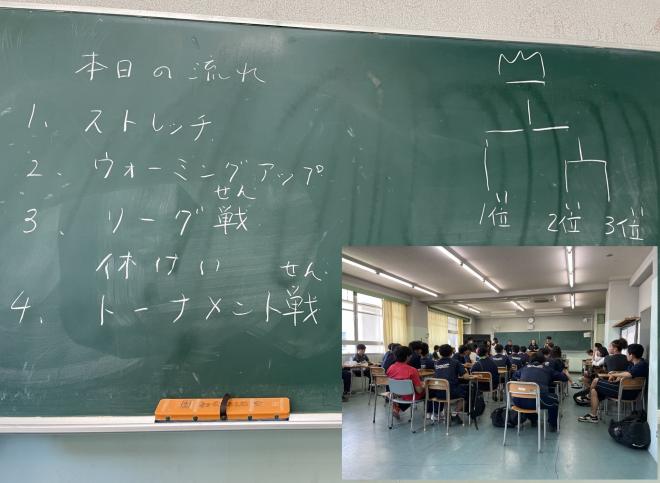 本日の流れ
1、ストレッチ
2、ウォーミングアップ
せん
3、リーグ戦
休けい
せん
4、トーナメント戦
い い い
1位 2位 3位